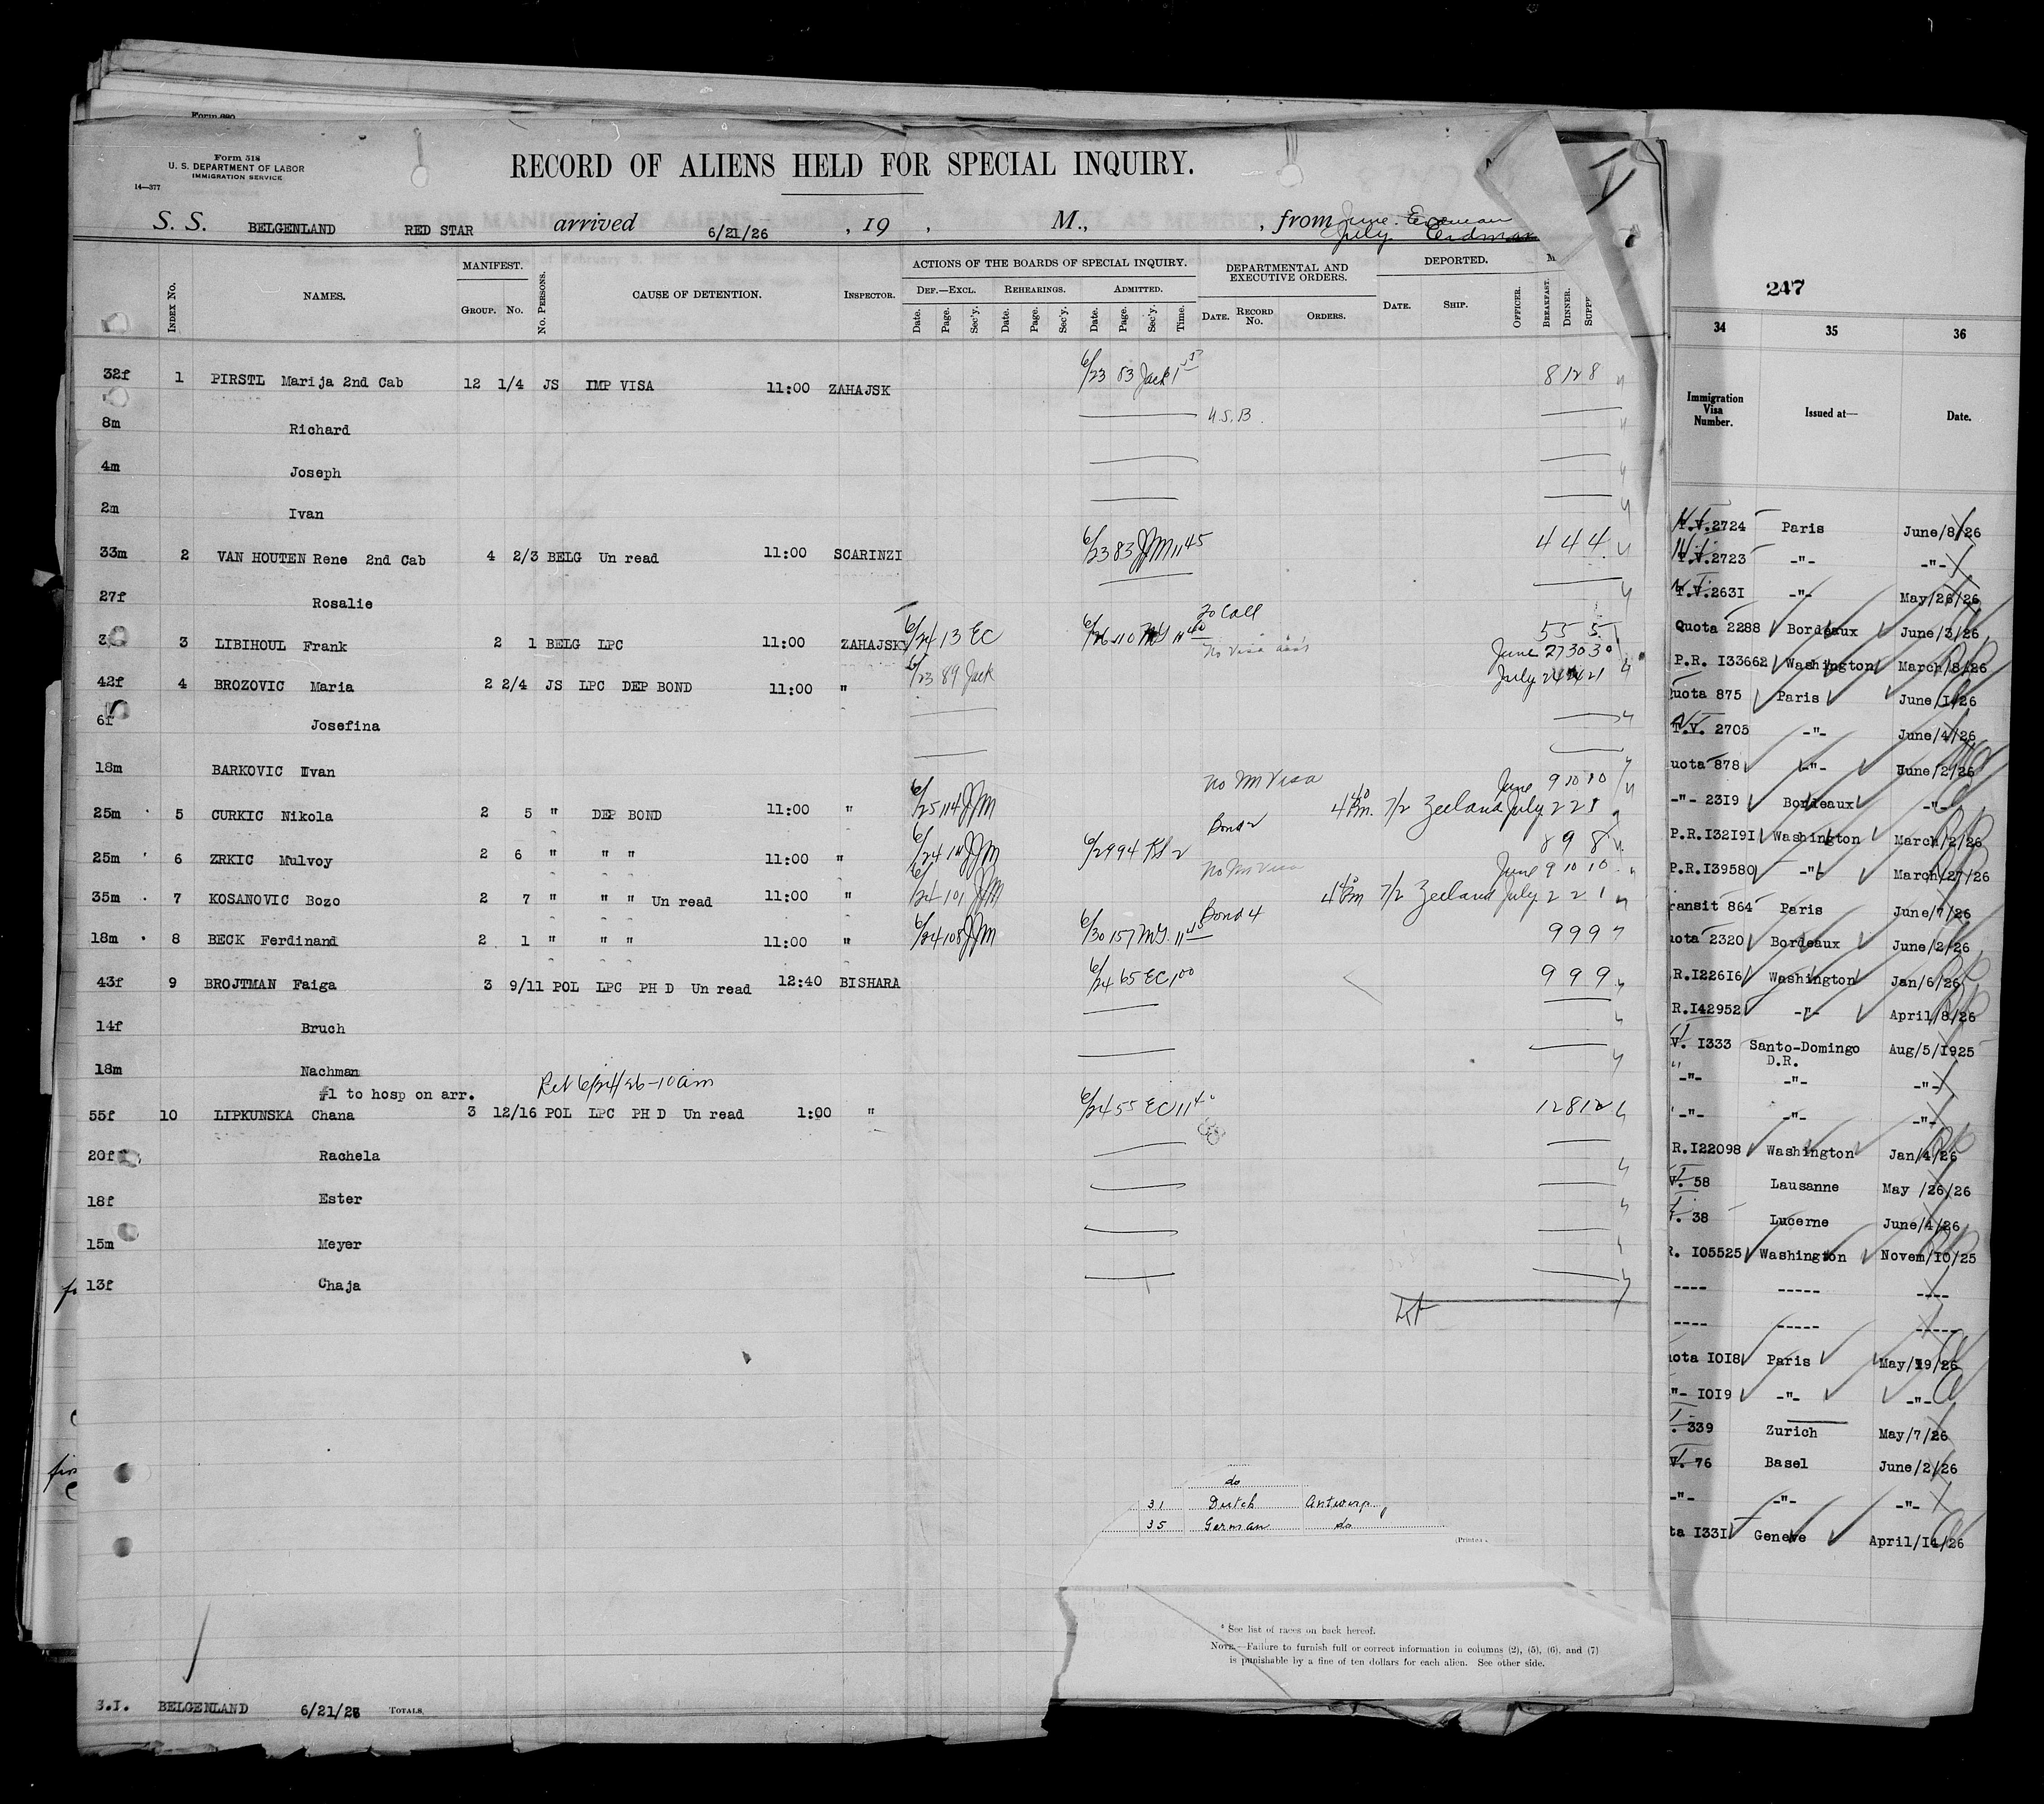 Form 518
U. S. DEPARTMENT OF LABOR
IMMIGRATION SERVICE
14—377
RECORD OF ALIENS HELD FOR SPECIAL INQUIRY.
S. S. BELGENLAND RED STAR arrived 6/21/26 , 19 , M., , from
Index No. NAMES. MANIFEST. Group. No. No. Persons. CAUSE OF DETENTION. Inspector. ACTIONS OF THE BOARDS OF SPECIAL INQUIRY. Def.—Excl. Rehearings. Admitted. Date. Page. Sec'y. Date. Page. Sec'y. Date. Page. Sec'y. Time. DEPARTMENTAL AND EXECUTIVE ORDERS. Date. Record No. Orders. DEPORTED. Date. Ship. Officer. Breakfast. Dinner.
32f 1 PIRSTL Marija 2nd Cab 12 1/4 JS IMP VISA 11:00 ZAHAJSK 6/23 83 Jack 8 12 8
8m Richard U.S.B.
4m Joseph
2m Ivan
33m 2 VAN HOUTEN Rene 2nd Cab 4 2/3 BELG Un read 11:00 SCARINZI 6/23 83 JJM 11 45 4 4 4
27f Rosalie
3 LIBIHOUL Frank 2 1 BELG LPC 11:00 ZAHAJSKY 6/24 13 EC 6/26 110 11 40 To Call 5 5 5
42f 4 BROZOVIC Maria 2 2/4 JS LPC DEP BOND 11:00 " 6/23 89 Jack June 27 30 30 July
6f Josefina
18m BARKOVIC Ivan
25m 5 CURKIC Nikola 2 5 " DEP BOND 11:00 " 6/25 114 JJM No Im Visa 7/2 Zeeland June 9 10 10 July 2 2 1
25m 6 ZRKIC Mulvoy 2 6 " " " 11:00 " 6/24 JJM 6/29 94 Bond 8 9 8
35m 7 KOSANOVIC Bozo 2 7 " " " Un read 11:00 " 6/24 101 JJM No Im Visa 7/2 Zeeland June 9 10 10 July 2 2 1
18m 8 BECK Ferdinand 2 1 " " " 11:00 " 6/24 105 JJM 6/30 157 Bond 4 9 9 9
43f 9 BROJTMAN Faiga 3 9/11 POL LPC PH D Un read 12:40 BISHARA 6/24 65 EC 1 00 9 9 9
14f Bruch
18m Nachman
#1 to hosp on arr. Ret 6/24/26-10am
55f 10 LIPKUNSKA Chana 3 12/16 POL LPC PH D Un read 1:00 " 6/24 55 EC 11 40 12 8 12
20f Rachela
18f Ester
15m Meyer
13f Chaja
do
31 Dutch Antwerp
35 German do
* See list of races on back hereof.
Note.—Failure to furnish full or correct information in columns (2), (5), (6), and (7)
is punishable by a fine of ten dollars for each alien. See other side.
BELGENLAND 6/21/26 Totals.
247
34 35 36
Immigration Visa Number. Issued at— Date.
T.V.2724 Paris June/8/26
T.V.2723 -"- -"-
T.V.2631 -"- May/26/26
Quota 2288 Bordeaux June/3/26
P.R. I33662 Washington March/8/26
uota 875 Paris June/1/26
T.V. 2705 -"- June/4/26
uota 878 -"- June/2/26
-"- 2319 Bordeaux -"-
P.R.I32I9I Washington March/2/26
P.R.I39580 -"- March/27/26
ransit 864 Paris June/7/26
uota 2320 Bordeaux June/2/26
R.I226I6 Washington Jan/6/26
R.I42952 -"- April/8/26
V. I333 Santo-Domingo D.R. Aug/5/I925
-"- -"- -"-
-"- -"- -"-
R.I22098 Washington Jan/4/26
V. 58 Lausanne May /26/26
38 Lucerne June/4/26
R. I05525 Washington Novem/I0/25
---- ----- ----
---- ----- -----
uota I0I8 Paris May/19/26
"- I0I9 -"- -"-
339 Zurich May/7/26
V. 76 Basel June/2/26
-"- -"- -"-
ta I33I Geneve April/I4/26